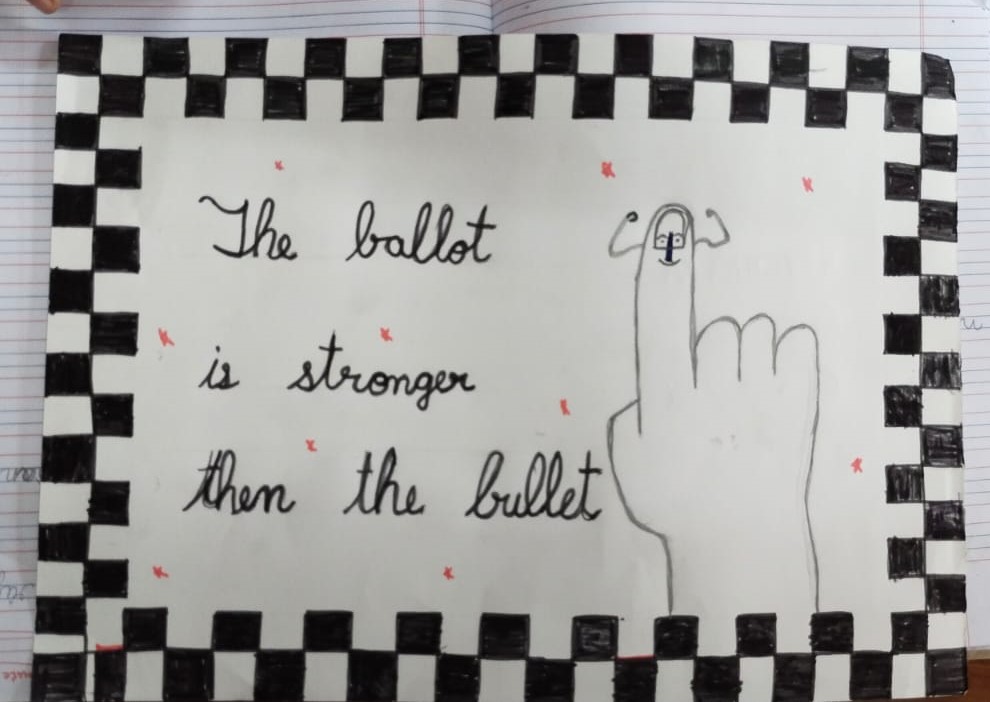 The ballot
is stronger
then the bullet